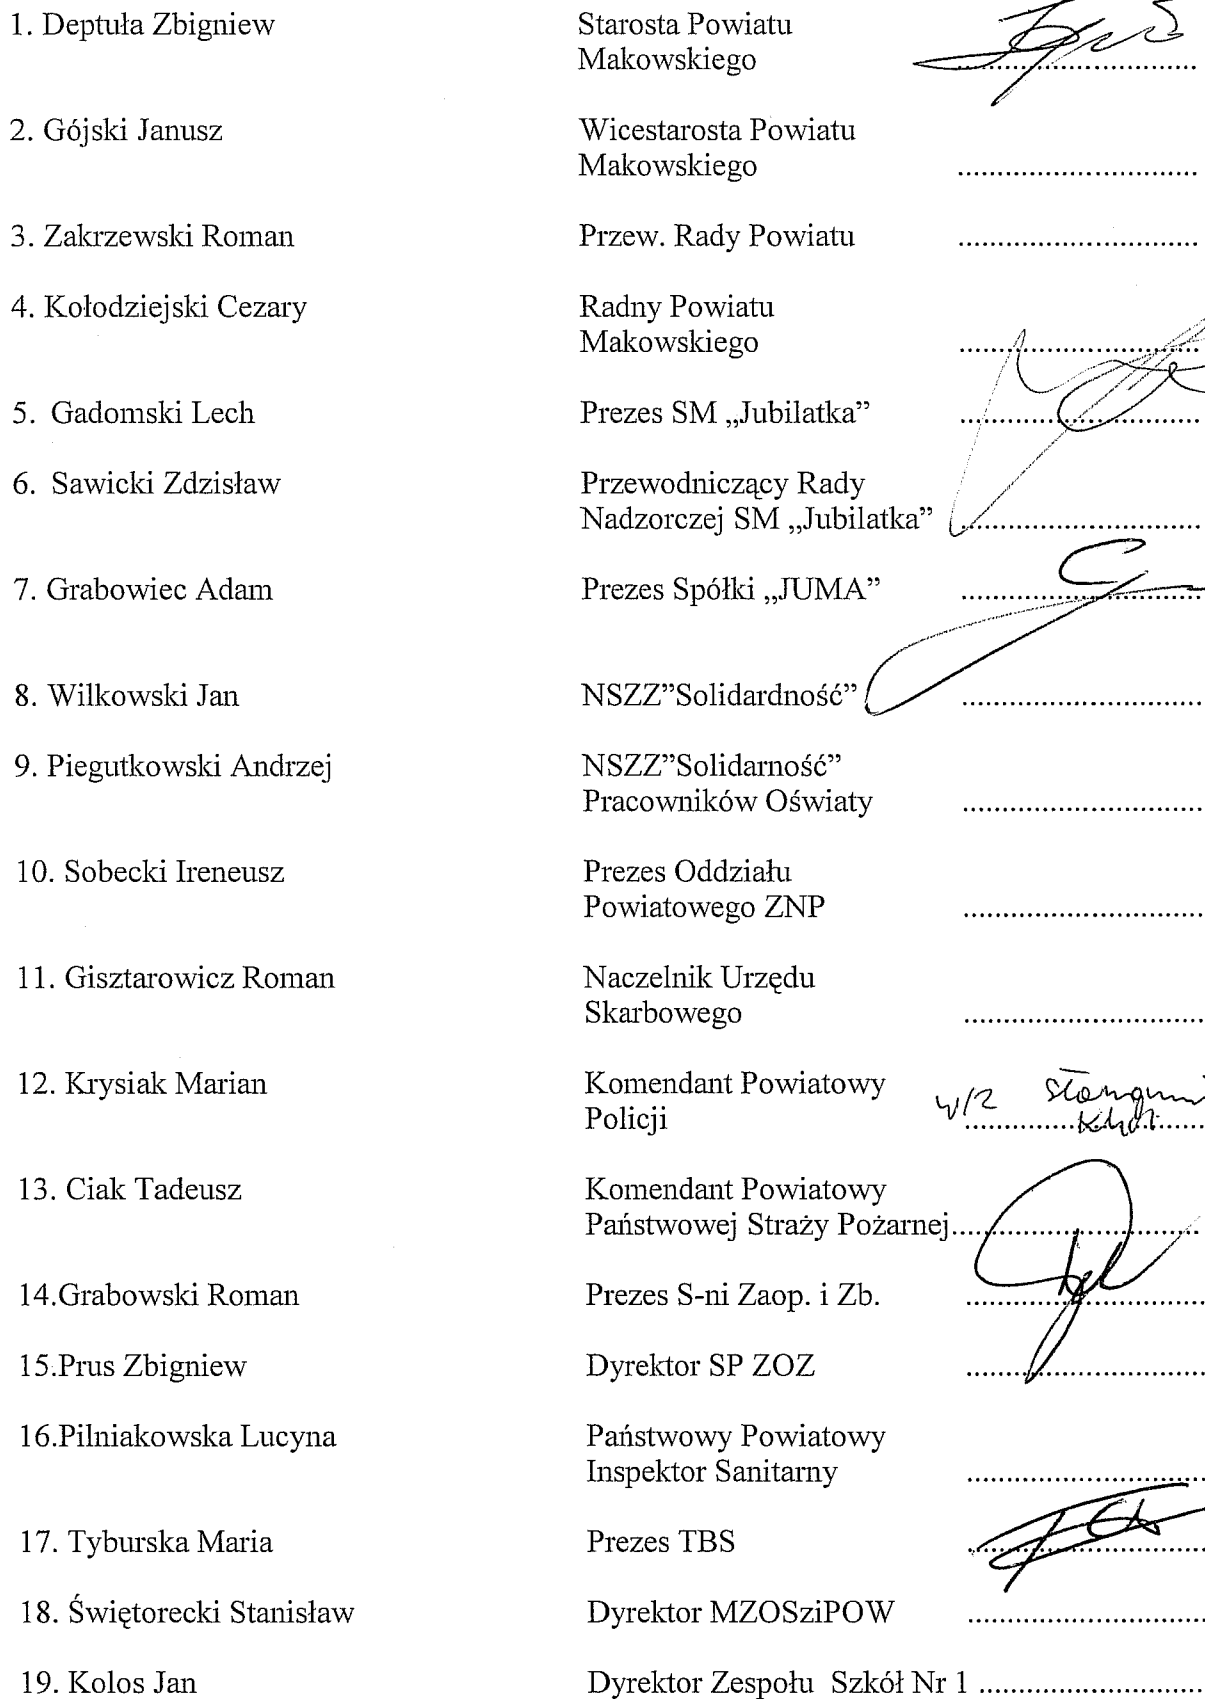 1. Deptuła Zbigniew Starosta Powiatu
Makowskiego ..............................
2. Gójski Janusz Wicestarosta Powiatu
Makowskiego ..............................
3. Zakrzewski Roman Przew. Rady Powiatu ..............................
4. Kołodziejski Cezary Radny Powiatu
Makowskiego ..............................
5. Gadomski Lech Prezes SM „Jubilatka” ..............................
6. Sawicki Zdzisław Przewodniczący Rady
Nadzorczej SM „Jubilatka” ..............................
7. Grabowiec Adam Prezes Spółki „JUMA” ..............................
8. Wilkowski Jan NSZZ”Solidardność” ..............................
9. Piegutkowski Andrzej NSZZ”Solidarność”
Pracowników Oświaty ..............................
10. Sobecki Ireneusz Prezes Oddziału
Powiatowego ZNP ..............................
11. Gisztarowicz Roman Naczelnik Urzędu
Skarbowego ..............................
12. Krysiak Marian Komendant Powiatowy w/z
Policji ..............................
13. Ciak Tadeusz Komendant Powiatowy
Państwowej Straży Pożarnej ..............................
14.Grabowski Roman Prezes S-ni Zaop. i Zb. ..............................
15.Prus Zbigniew Dyrektor SP ZOZ ..............................
16.Pilniakowska Lucyna Państwowy Powiatowy
Inspektor Sanitarny ..............................
17. Tyburska Maria Prezes TBS ..............................
18. Świętorecki Stanisław Dyrektor MZOSziPOW ..............................
19. Kolos Jan Dyrektor Zespołu Szkół Nr 1 ..............................